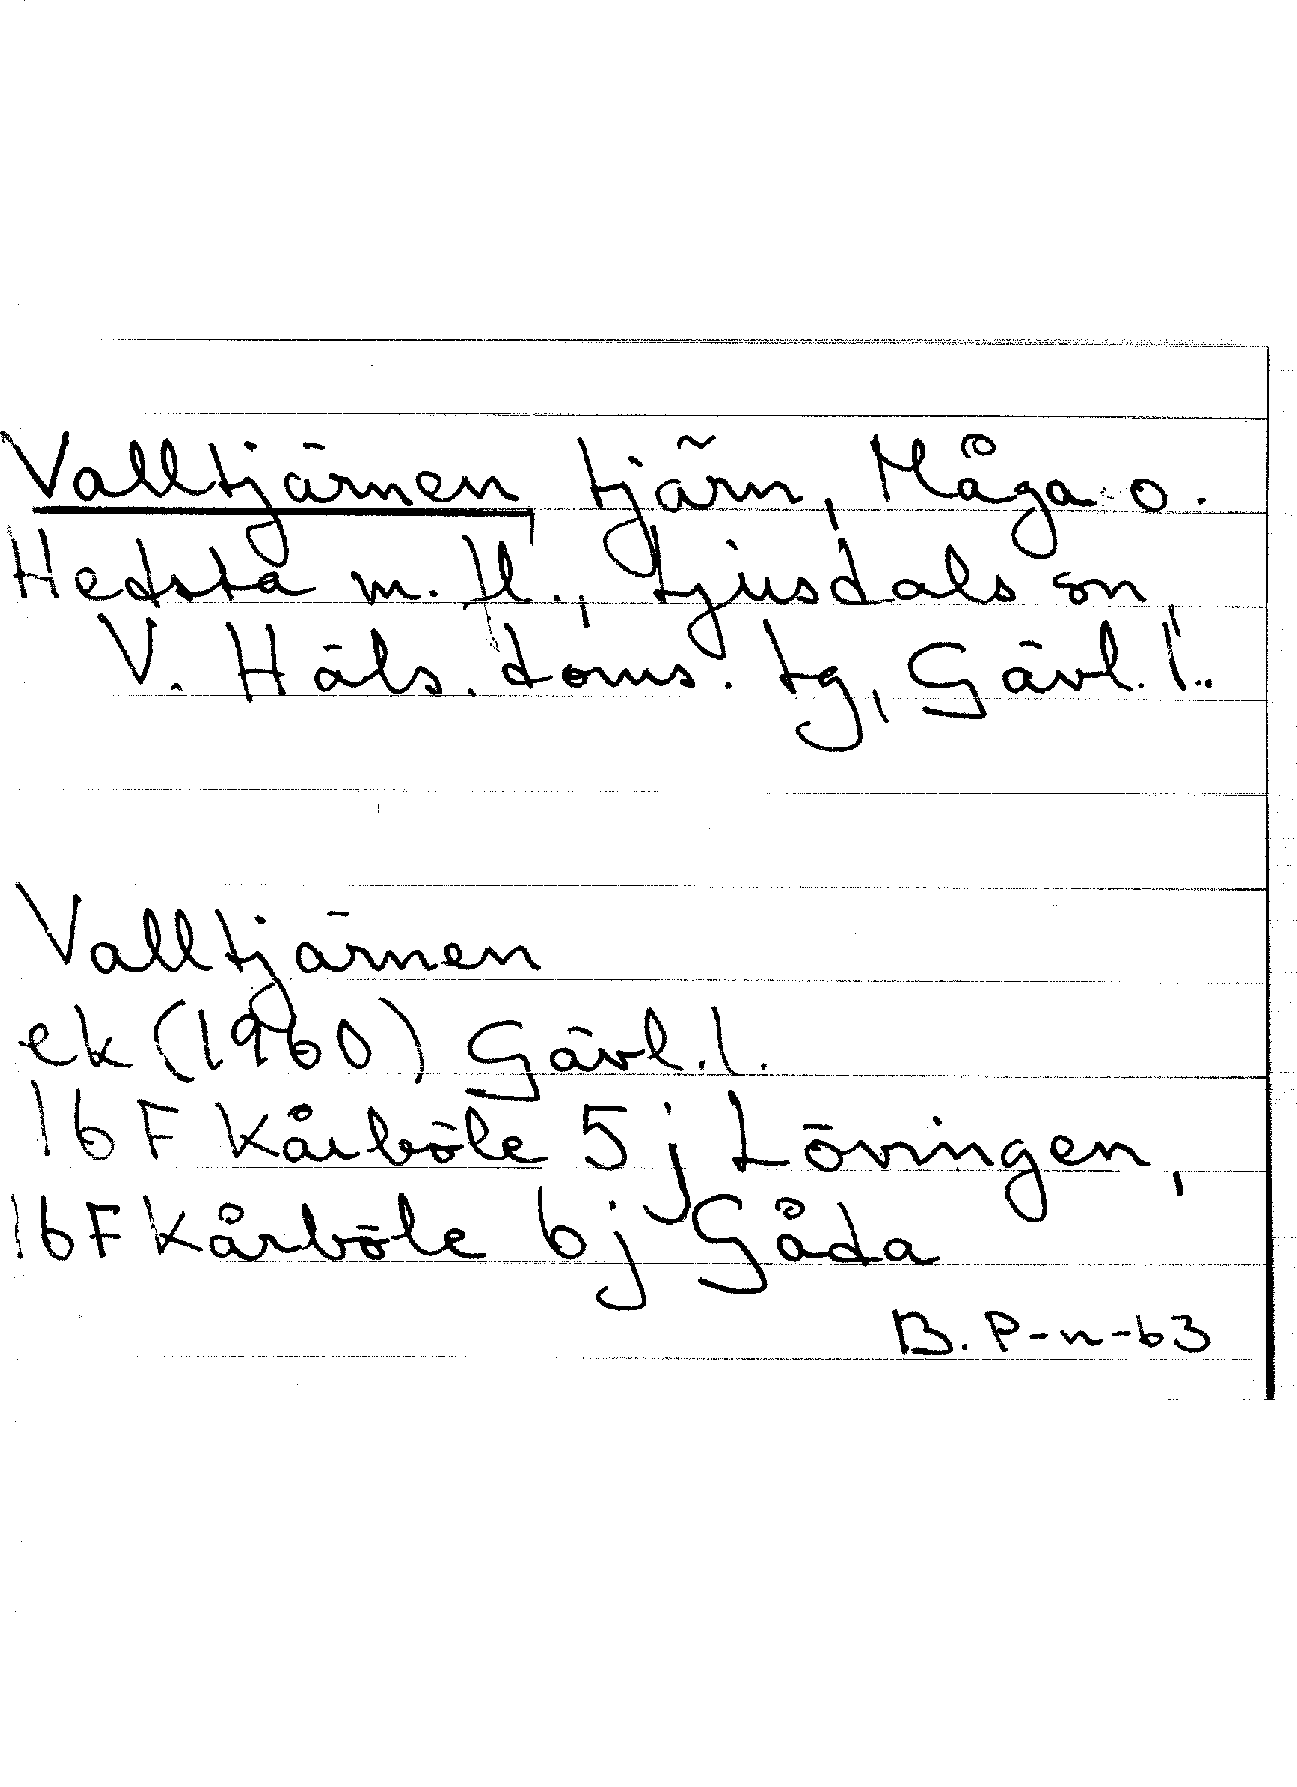 Valltjärnen tjärn, Måga o.
Hedsta m. fl., Ljusdals sn,
V. Häls. doms. tg, Gävl. l.
Valltjärnen
ek (1960) Gävl. l.
16 F Kårböle 5 j Lövingen,
16 F Kårböle 6 j Gåda
B. P-n-63